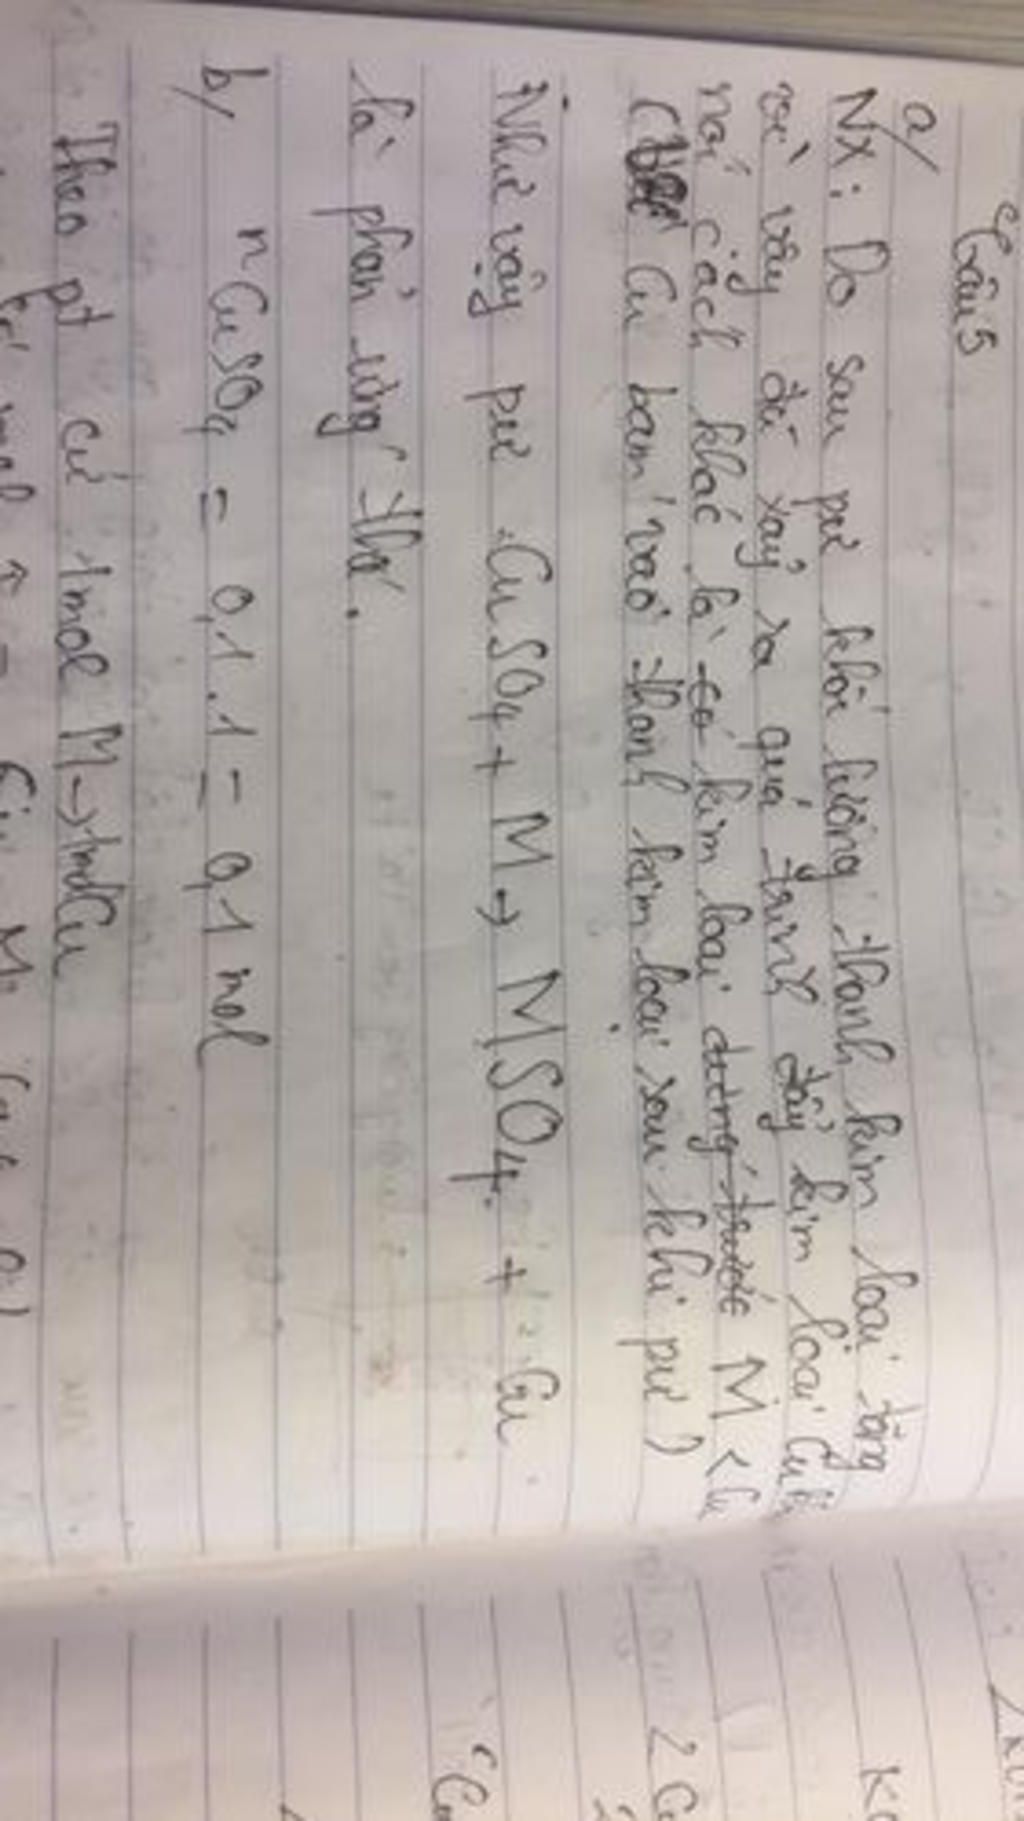 Câu 5
a/
NX: Do sau pư khối lượng thanh kim loại tăng
vì vậy đã xảy ra quá trình đẩy kim loại Cu
nói cách khác là có kim loại đứng trước M < Cu
( Cu bám vào thanh kim loại sau khi pư )
Như vậy pư CuSO4 + M → MSO4 + Cu
là phản ứng thế.
b/ nCuSO4 = 0,1.1 = 0,1 mol
Theo pt cứ 1mol M → 1mol Cu